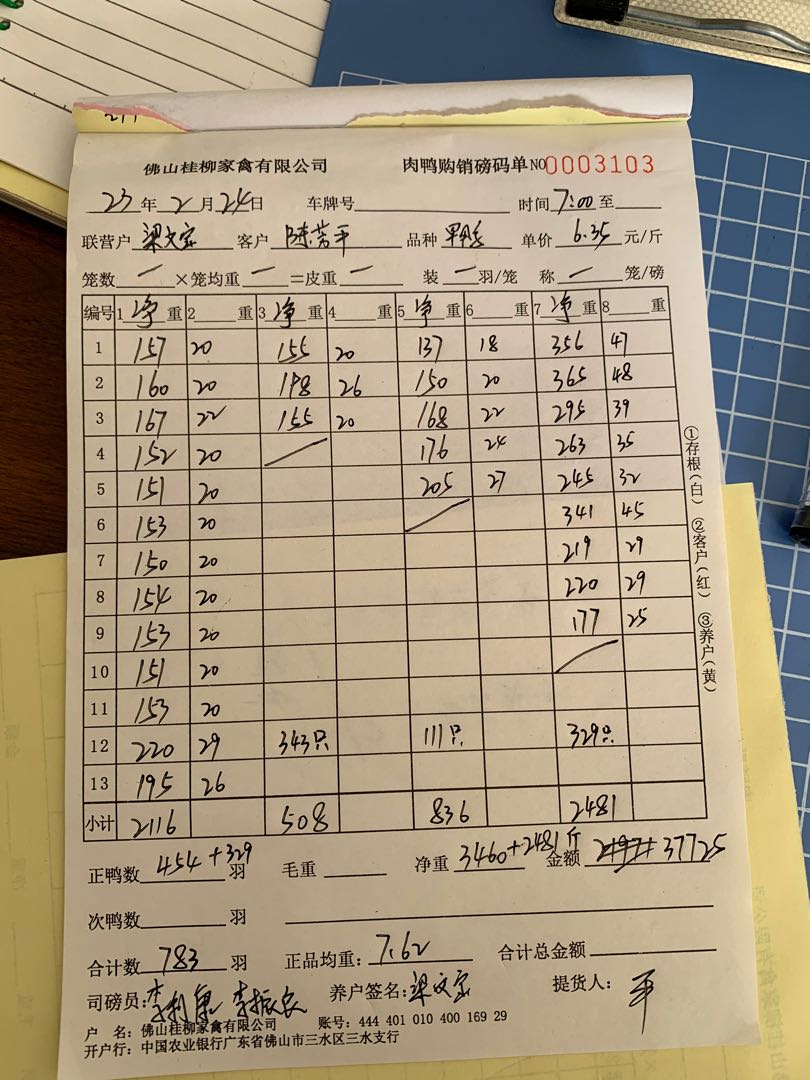 佛山桂柳家禽有限公司 肉鸭购销磅码单 NO 0003103
23 年 2 月 24 日 车牌号 时间 7:00 至
联营户 梁文宝 客户 陈芳平 品种 单价 6.35 元/斤
笼数 一 ×笼均重 一 =皮重 一 装 一 羽/笼 称 一 笼/磅
编号 1 净 重 2 重 3 净 重 4 重 5 净 重 6 重 7 净 重 8 重
1 157 20 155 20 137 18 356 47
2 160 20 198 26 150 20 365 48
3 167 22 155 20 168 22 295 39
4 152 20 176 24 263 35
5 151 20 205 27 245 32
6 153 20 341 45
7 150 20 219 29
8 154 20 220 29
9 153 20 177 25
10 151 20
11 153 20
12 220 29 343只 111只 329只
13 195 26
小计 2116 508 836 2481
正鸭数 454+329 羽 毛重 净重 3460+2481斤 金额 37725
次鸭数 羽
合计数 783 羽 正品均重: 7.62 合计总金额
司磅员: 养户签名: 梁文宝 提货人: 平
户 名: 佛山桂柳家禽有限公司 账号: 444 401 010 400 169 29
开户行: 中国农业银行广东省佛山市三水区三水支行
①存根(白) ②客户(红) ③养户(黄)